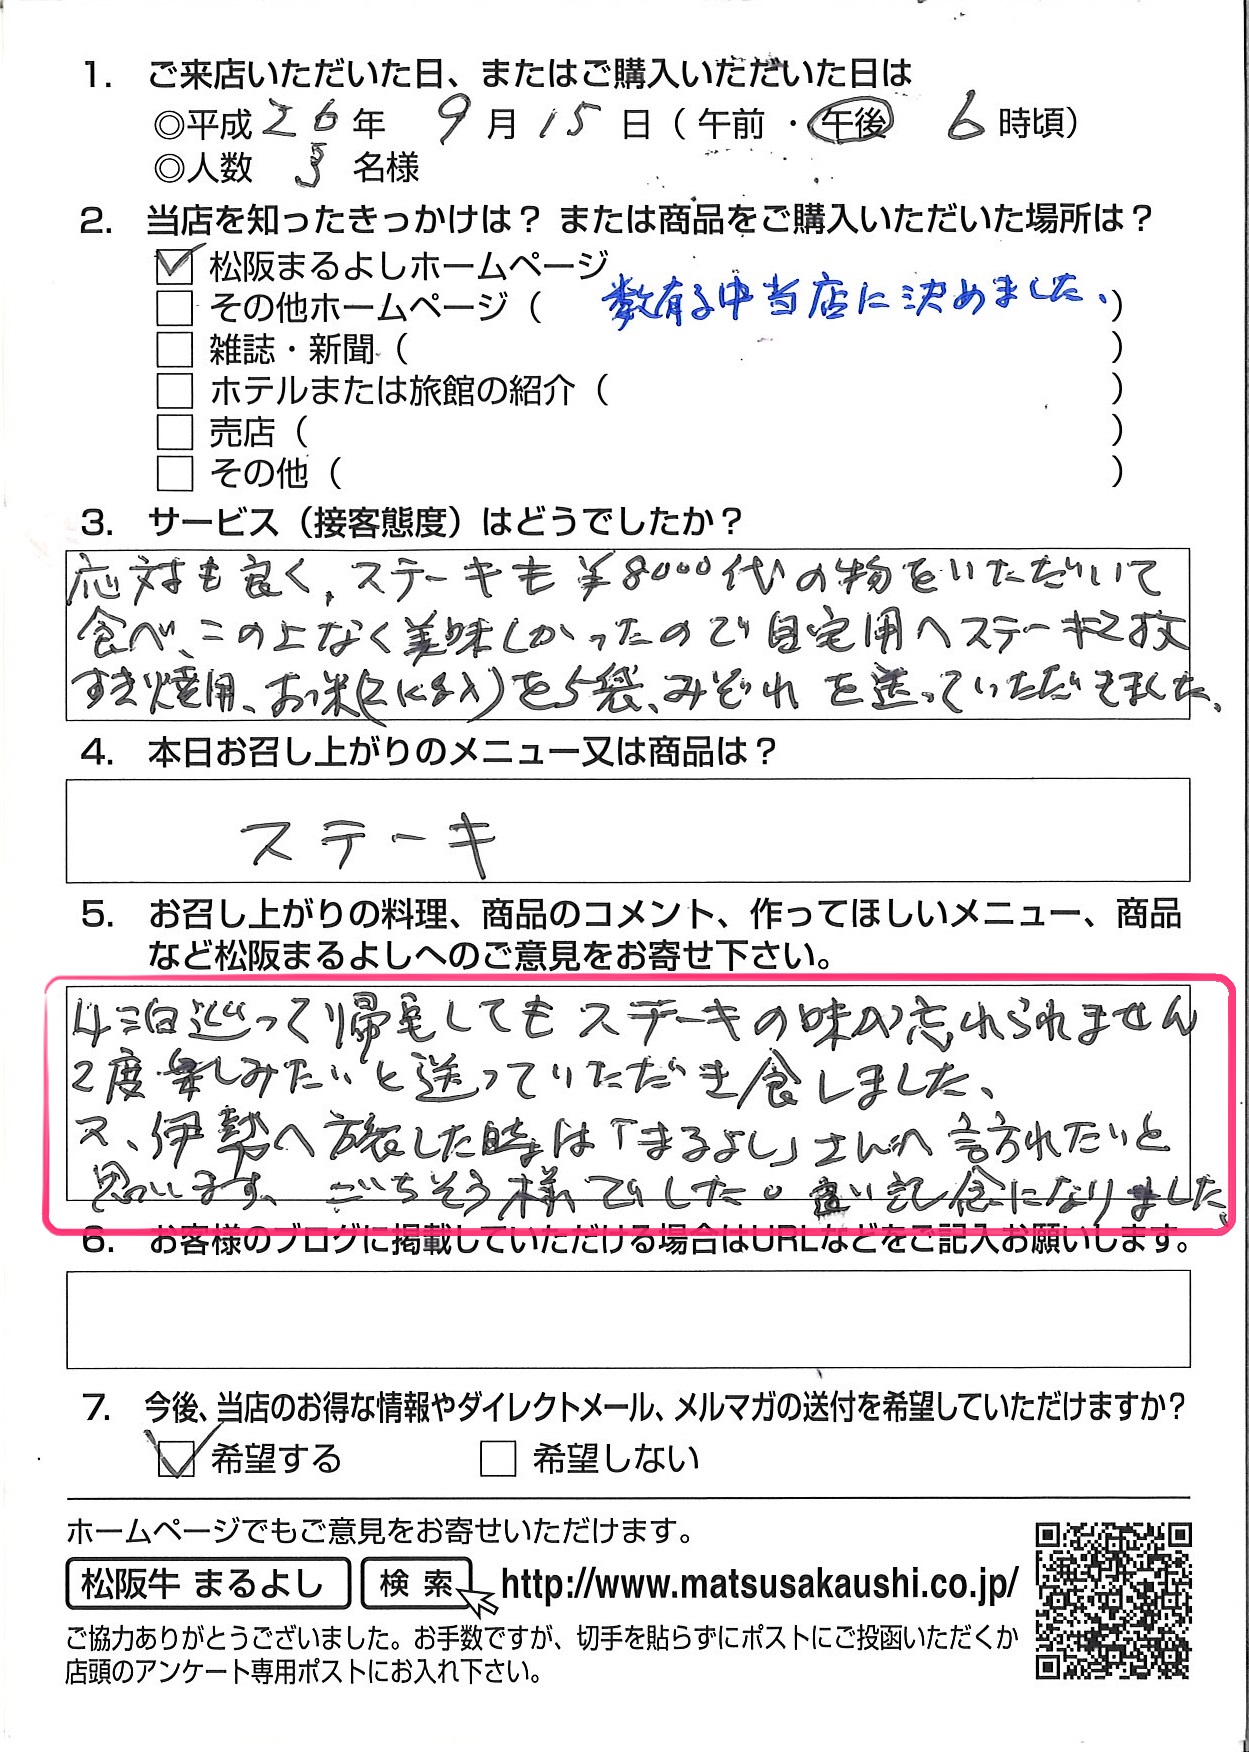 1. ご来店いただいた日、またはご購入いただいた日は
◎平成 26 年 9 月 15 日 ( 午前 ・ 午後 6 時頃)
◎人数 3 名様
2. 当店を知ったきっかけは？ または商品をご購入いただいた場所は？
松阪まるよしホームページ
その他ホームページ ( 数有る中当店に決めました、 )
雑誌・新聞 ( )
ホテルまたは旅館の紹介 ( )
売店 ( )
その他 ( )
3. サービス（接客態度）はどうでしたか？
応対も良く、ステーキも¥8000代の物をいただいて
食べ、この上なく美味しかったので自宅用へステーキ2枚
すき焼用、お米(2K入)を5袋、みぞれを送っていただきました、
4. 本日お召し上がりのメニュー又は商品は？
ステーキ
5. お召し上がりの料理、商品のコメント、作ってほしいメニュー、商品
など松阪まるよしへのご意見をお寄せ下さい。
4泊巡って帰宅してもステーキの味が忘れられません
2度楽しみたいと送っていただき食しました、
又、伊勢へ旅した時は「まるよし」さんへ訪れたいと
思います、ごちそう様でした。良い記念になりました、
6. お客様のブログに掲載していただける場合はURLなどをご記入お願いします。
7. 今後、当店のお得な情報やダイレクトメール、メルマガの送付を希望していただけますか？
希望する 希望しない
ホームページでもご意見をお寄せいただけます。
松阪牛 まるよし 検索 http://www.matsusakaushi.co.jp/
ご協力ありがとうございました。お手数ですが、切手を貼らずにポストにご投函いただくか
店頭のアンケート専用ポストにお入れ下さい。